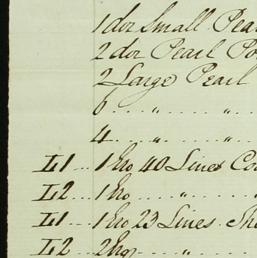 1 doz Small Pea
2 doz Pearl Po
2 Large Pearl
6 " "
4 " "
L1 1 40 Lines Co
L2 1 "
L1 1 23 Lines Sho
L2 2 "